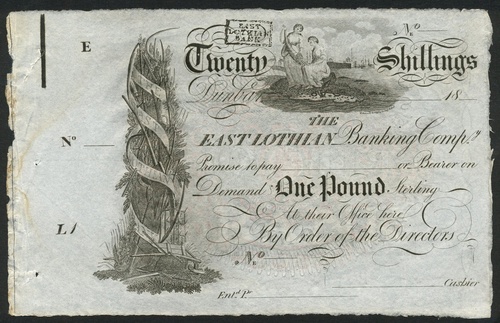 E
EAST
LOTHIAN
BANK
No
Twenty Shillings
Dunbar 18
THE
EAST LOTHIAN Banking Compy
No
Promise to pay or Bearer on
Demand One Pound Sterling
At their Office here
L1
By Order of the Directors
No
Cashier
Entd. Pr.